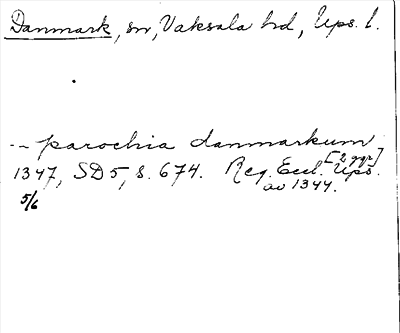 Danmark, sn, Vaksala hd, Ups. l.
-- parochia danmarkum [2 ggr]
1347, SD 5, s. 674. Reg. Eccl. Ups.
av 1344.
5/6